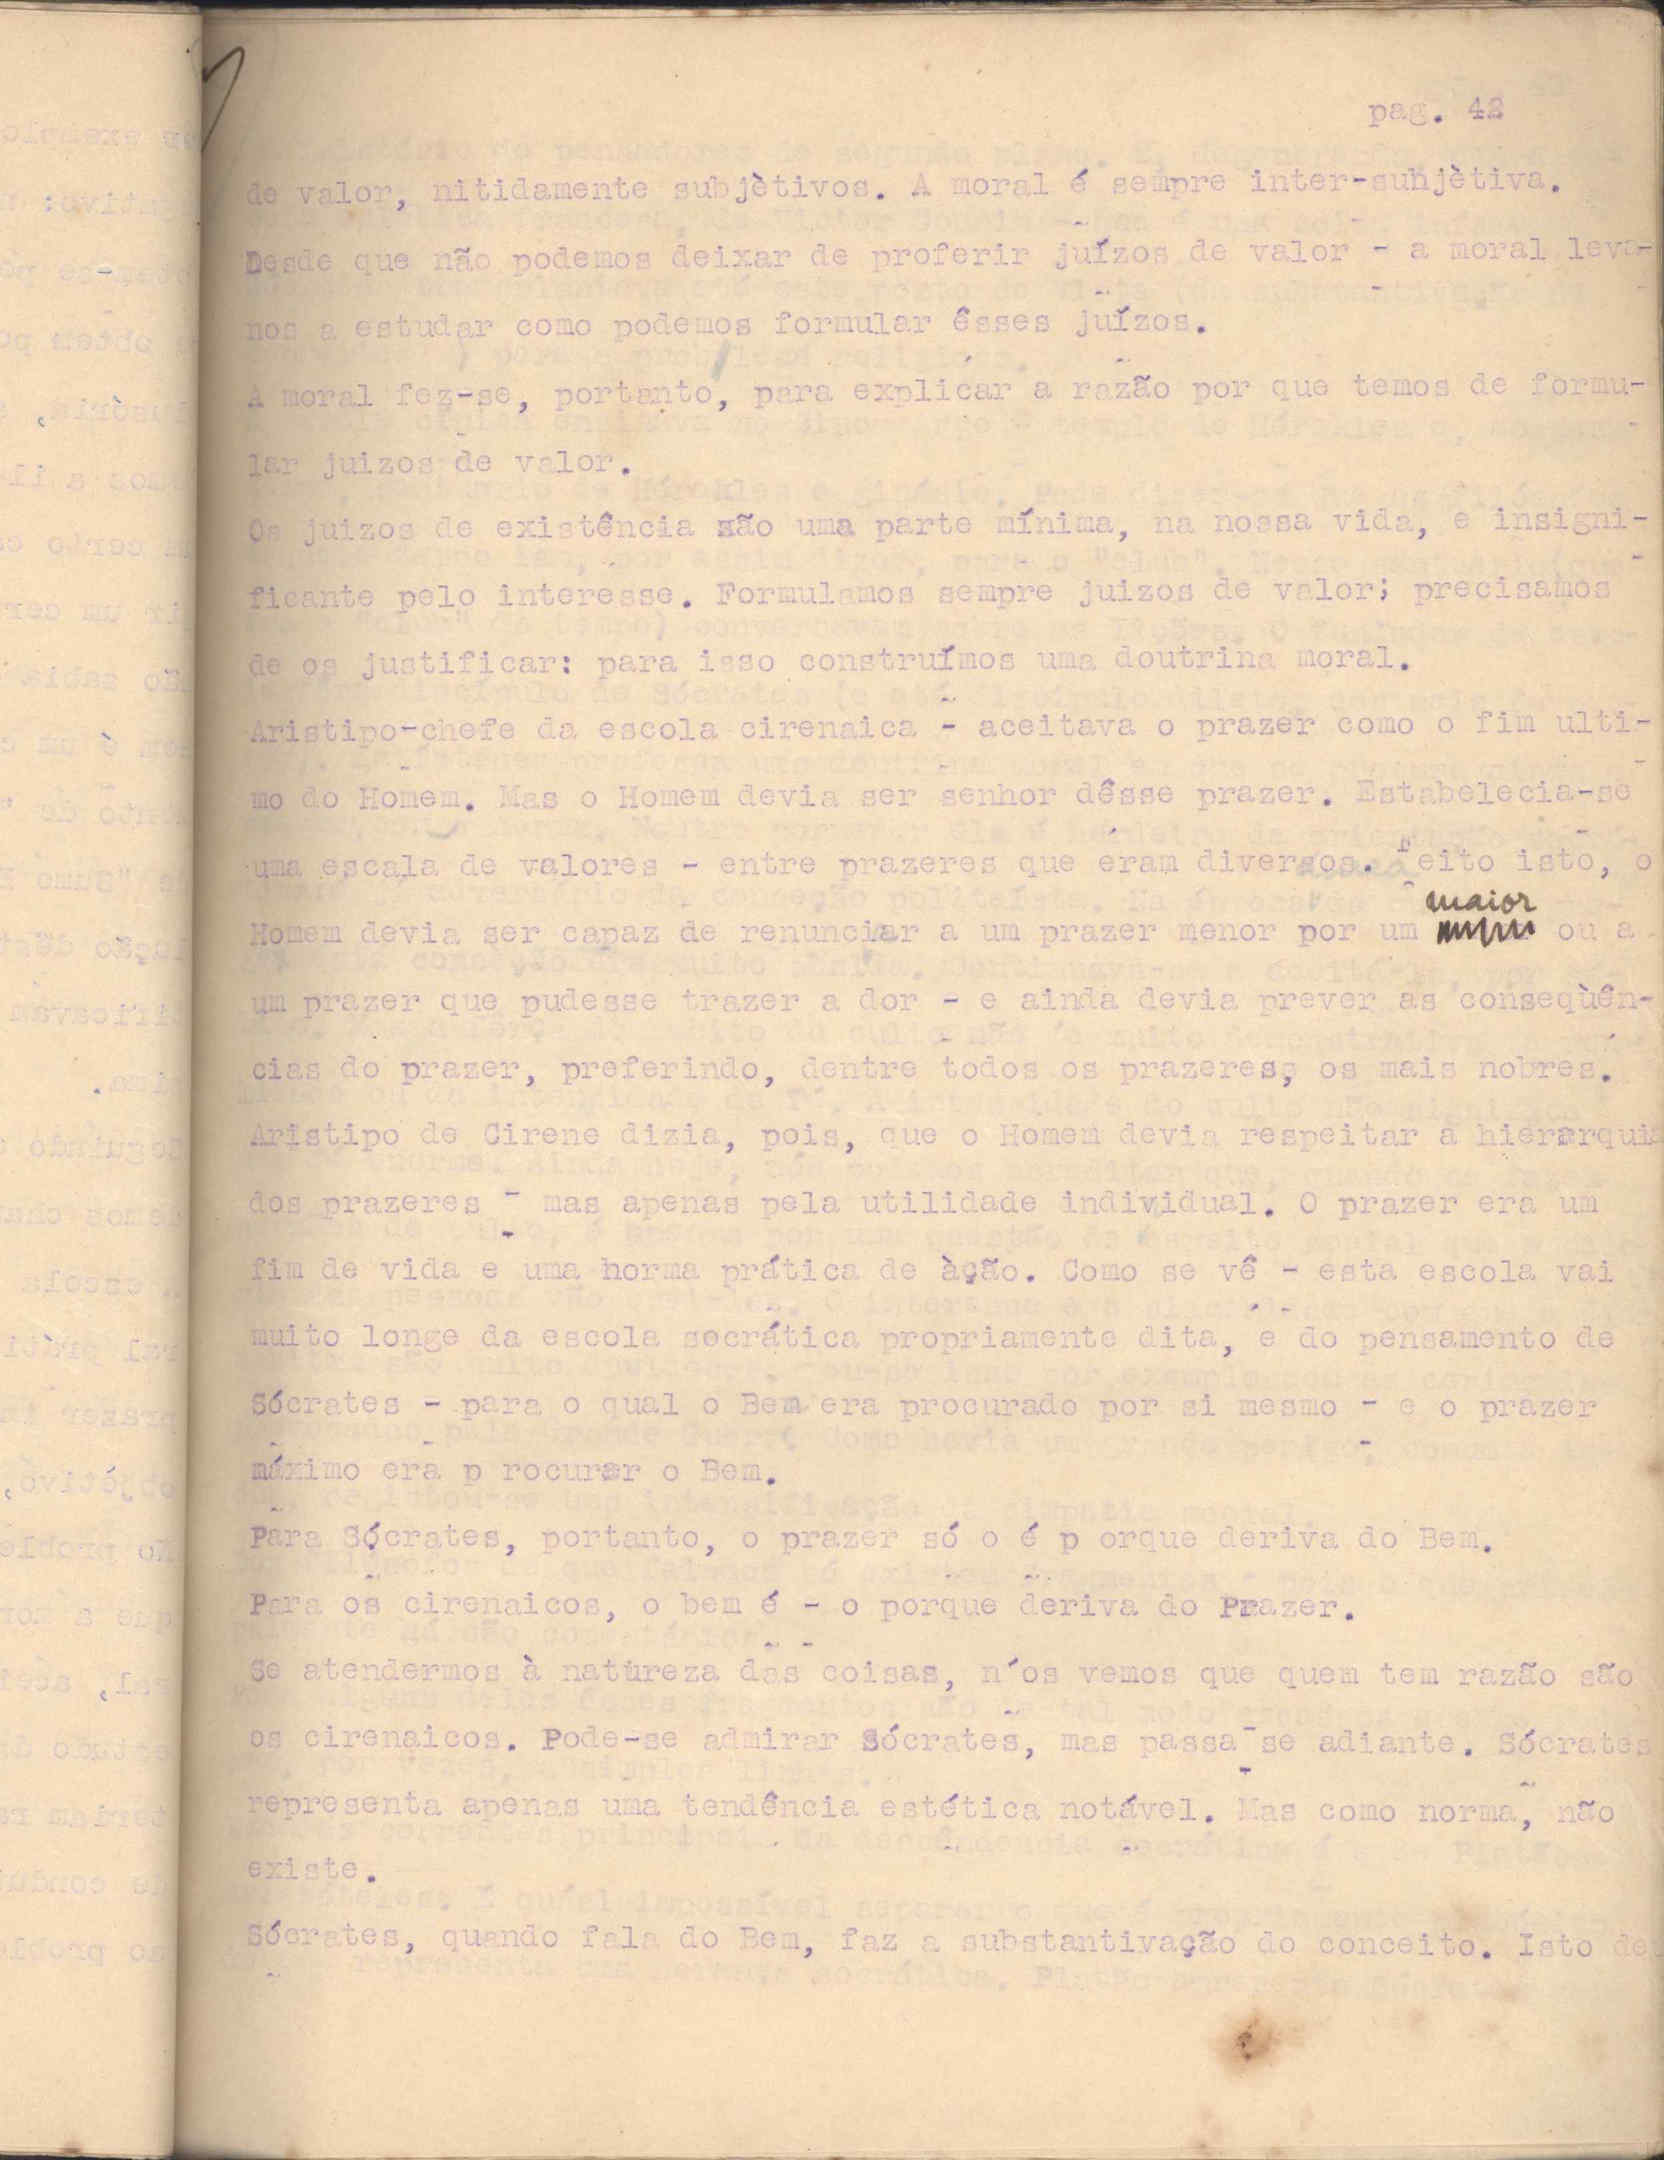 pag. 42
de valor, nitidamente subjètivos. A moral é sempre inter-subjètiva.
Desde que não podemos deixar de proferir juízos de valor - a moral leva-
nos a estudar como podemos formular êsses juízos.
A moral fez-se, portanto, para explicar a razão por que temos de formu-
lar juizos de valor.
Os juizos de existência são uma parte mínima, na nossa vida, e insigni-
ficante pelo interesse. Formulamos sempre juizos de valor; precisamos
de os justificar: para isso construímos uma doutrina moral.
Aristipo-chefe da escola cirenaica - aceitava o prazer como o fim ulti-
mo do Homem. Mas o Homem devia ser senhor dêsse prazer. Estabelecia-se
uma escala de valores - entre prazeres que eram diversos. Feito isto, o
maior
Homem devia ser capaz de renunciar a um prazer menor por um ou a
um prazer que pudesse trazer a dor - e ainda devia prever as conseqùên-
cias do prazer, preferindo, dentre todos os prazeres, os mais nobres.
Aristipo de Cirene dizia, pois, que o Homem devia respeitar a hierarquia
dos prazeres - mas apenas pela utilidade individual. O prazer era um
fim de vida e uma norma prática de àção. Como se vê - esta escola vai
muito longe da escola socrática propriamente dita, e do pensamento de
Sócrates - para o qual o Bem era procurado por si mesmo - e o prazer
máximo era p rocurar o Bem.
Para Sócrates, portanto, o prazer só o é p orque deriva do Bem.
Para os cirenaicos, o bem é - o porque deriva do Prazer.
Se atendermos à natureza das coisas, n´os vemos que quem tem razão são
os cirenaicos. Pode-se admirar Sócrates, mas passa-se adiante. Sócrates
representa apenas uma tendência estética notável. Mas como norma, não
existe.
Sócrates, quando fala do Bem, faz a substantivação do conceito. Isto de